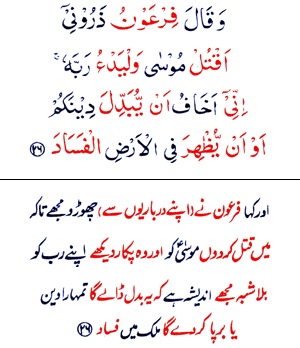 وَ قَالَ فِرْعَوْنُ ذَرُوْنِیْۤ
اَقْتُلْ مُوْسٰی وَلْیَدْعُ رَبَّهٗ ۚ
اِنِّیْۤ اَخَافُ اَنْ یُّبَدِّلَ دِیْنَكُمْ
اَوْ اَنْ یُّظْهِرَ فِی الْاَرْضِ الْفَسَادَ ﴿۲۶﴾
اور کہا فرعون نے (اپنے درباریوں سے) چھوڑو مجھے تاکہ
میں قتل کر دوں موسیٰؑ کو اور وہ پکار دیکھے اپنے رب کو
بلاشبہ مجھے اندیشہ ہے کہ یہ بدل ڈالے گا تمہارا دین
یا برپا کر دے گا ملک میں فساد ﴿۲۶﴾